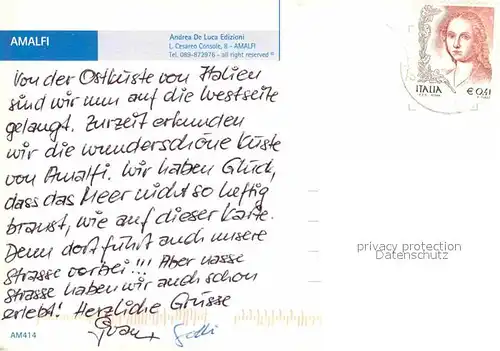 AMALFI
Andrea De Luca Edizioni
L. Cesareo Console, 8 - AMALFI
Tel. 089-872976 - all right reserved ®
Von der Ostküste von Italien
sind wir nun auf die Westseite
gelangt. Zurzeit erkunden
wir die wunderschöne Küste
von Amalfi. Wir haben Glück,
dass das Meer nicht so heftig
braust, wie auf dieser Karte.
Denn dort führt auch unsere
Strasse vorbei!!! Aber nasse
Strasse haben wir auch schon
erlebt! Herzliche Grüsse
AM414
ITALIA
€ 0,41
privacy protection
Datenschutz